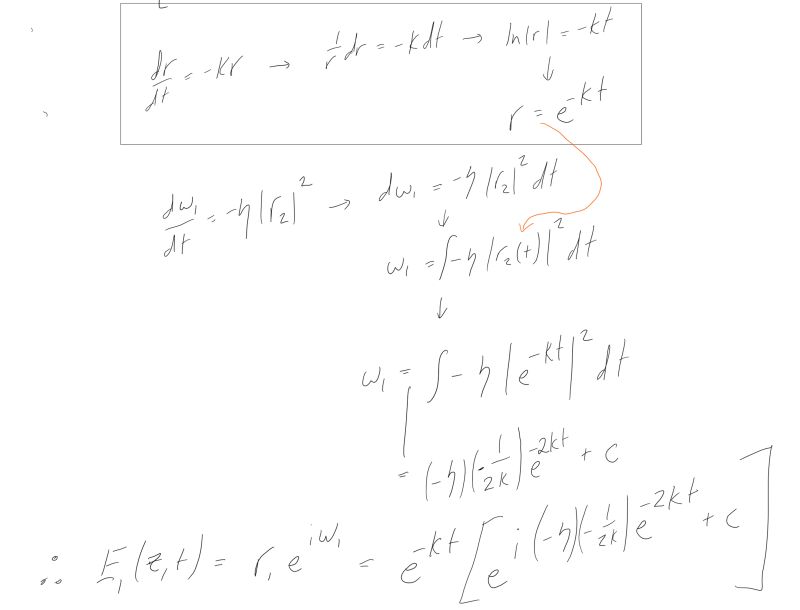 dr/dt = -Kr → 1/r dr = -k dt → ln|r| = -kt
↓
r = e^{-kt}
dω₁/dt = -η|r₂|² → dω₁ = -η|r₂|² dt
↓
ω₁ = ∫-η|r₂(t)|² dt
↓
ω₁ = ∫-η|e^{-kt}|² dt
= (-η)(-1/2k)e^{-2kt} + c
∴ E₁(z,t) = r₁e^{iω₁} = e^{-kt}[e^{i(-η)(-1/2k)e^{-2kt} + c}]